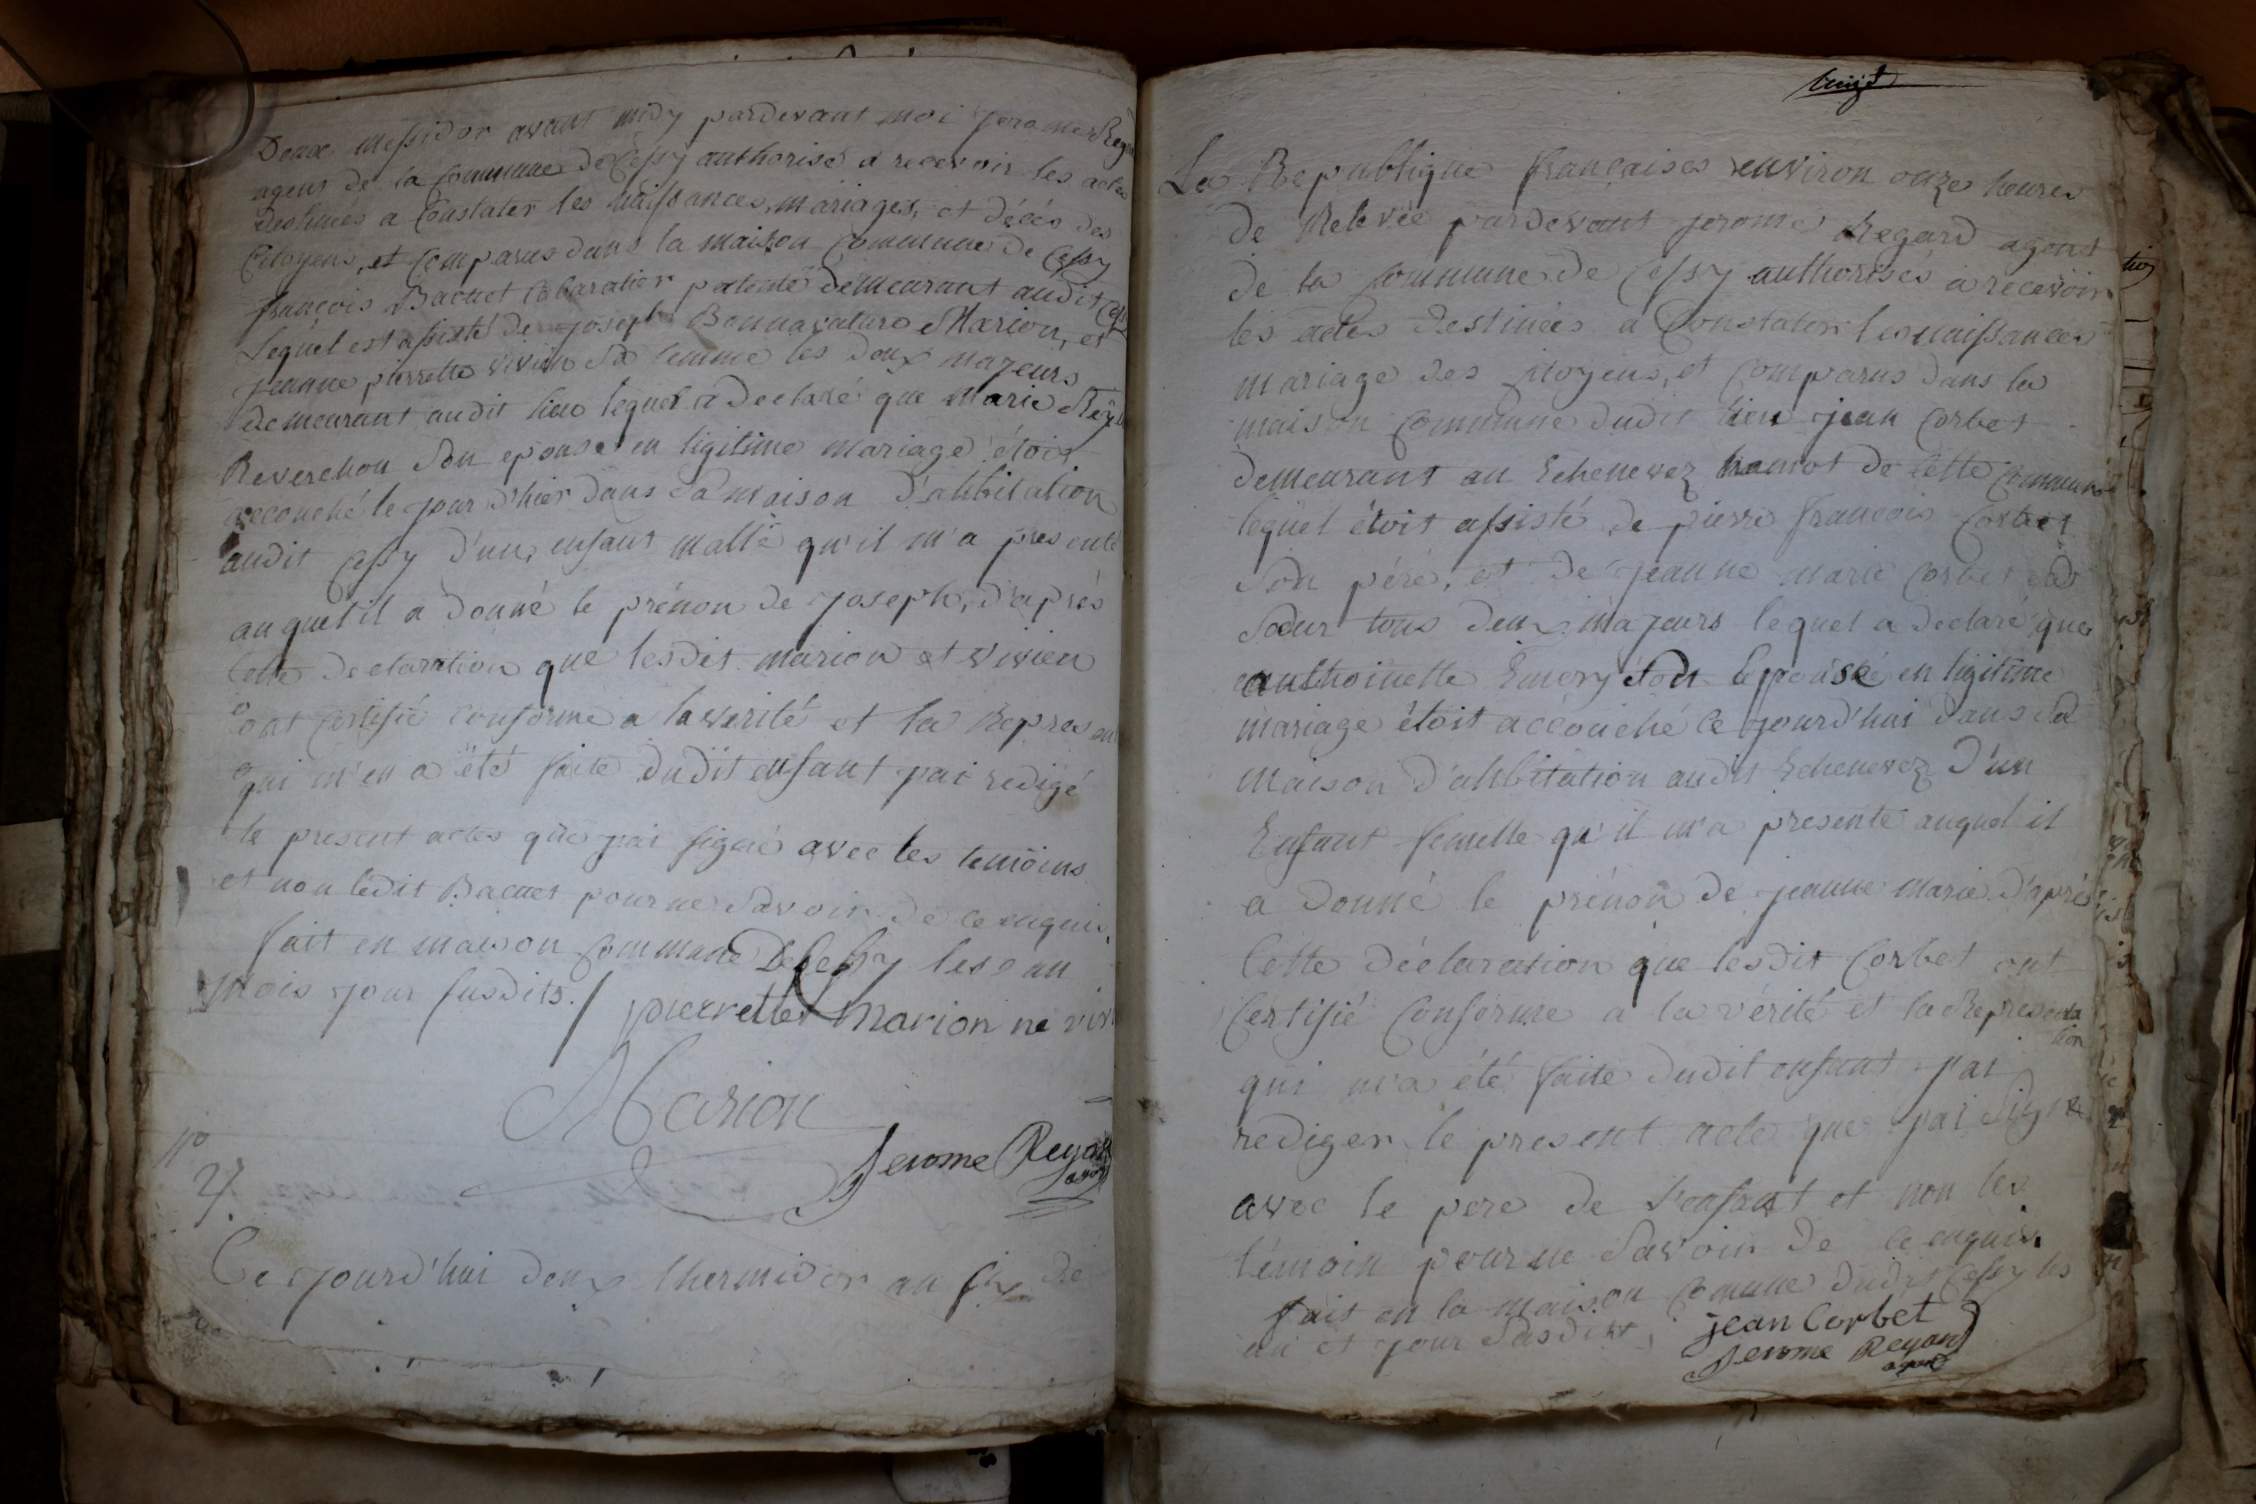 Deux messidor avant midy pardevant moi jerome Reg
agent de la Commune de Cessy authorisé a recevoir les actes
destinés a Constater les naissances, mariages, et décés des
Citoyens, et Comparus dans la maison Commune de Cessy
françois Bacuet Cabaratier patenté demeurant audit Cessy
Lequel est assisté de joseph Bonnavature Marion, et
jeanne pierrette vivien Sa femme les deux majeurs
demeurant audit lieu lequel a declaré que Marie
Reverchon Son epouse en ligitime mariage étoit
accouché le jour d'hier dans Sa maison d'ahbitation
audit Cessy d'un enfant malle qu'il m'a presenté
auquel il a donné le prénon de joseph, d'aprés
Cette declaration que lesdit marion et vivien
ont Certifié conforme a la verité et la Represen
qui m'en a été faite dudit enfant jai redigé
le present actes que jai signé avec les temoins
et non ledit Bacuet pour ne Savoir de ce enquis.
fait en maison Commune de Cessy les an
mois jour susdits. / pierrette marion ne viv
Marion
Jerome Regar
agent
no
27
Ce jourd'hui deux thermidor an six de
La Republique française environ onze heures
de Relevée pardevant jerome Regard agent
de la Commune de Cessy authorisés a recevoir
les actes destinées a Constater les naissances
mariage des Citoyens, et Comparus dans la
maison Commune dudit lieu jean Corbet
demeurant au Echenevez hamot de Cette Commune
lequel étoit assisté de pierre françois Corbet
Son pére, et de jeanne marie Corbet sa
Sœur tous deux majeurs lequel a declaré que
anthoinette Emery Son Epousé en ligitime
mariage étoit accouché ce jourd'hui dans Sa
maison d'ahbitation audit Echenevez d'un
Enfant femelle qu'il m'a presenté auquel il
a donné le prénon de jeanne marie d'aprés
Cette déclaration que lesdit Corbet ont
Certifié Conforme a la vérité et la Representa
tion
qui m'a été faite dudit enfant j'ai
rediger le present acte que jai Signé
avec le pere de l'enfant et non les
témoin pour ne Savoir de ce enquis.
fait en la maison Comune dudit Cessy les
an et jour Susdits,
jean Corbet
Jerome Regard
agent